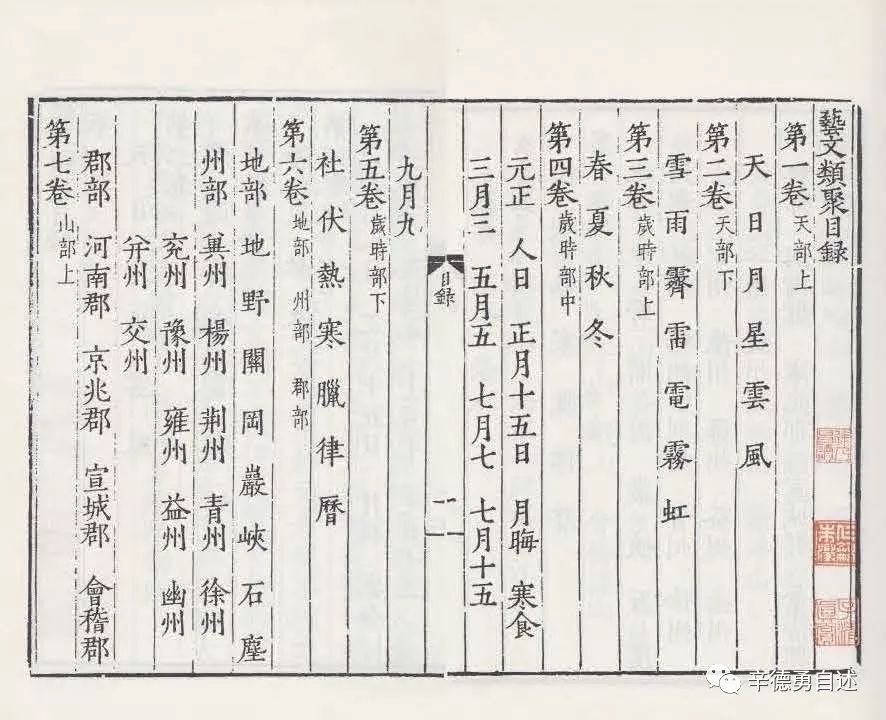 藝文類聚目録
第一卷 天部上
天 日 月 星 雲 風
第二卷 天部下
雪 雨 霽 雷 電 霧 虹
第三卷 歲時部上
春 夏 秋 冬
第四卷 歲時部中
元正 人日 正月十五日 月晦 寒食
三月三 五月五 七月七 七月十五
目録
一
二
九月九
第五卷 歲時部下
社 伏 熱 寒 臘 律 曆
第六卷 地部 州部 郡部
地部 地 野 關 岡 巖 峽 石 塵
州部 兾州 楊州 荆州 青州 徐州
兖州 豫州 雍州 益州 幽州
并州 交州
郡部 河南郡 京兆郡 宣城郡 會稽郡
第七卷 山部上
辛德勇自述